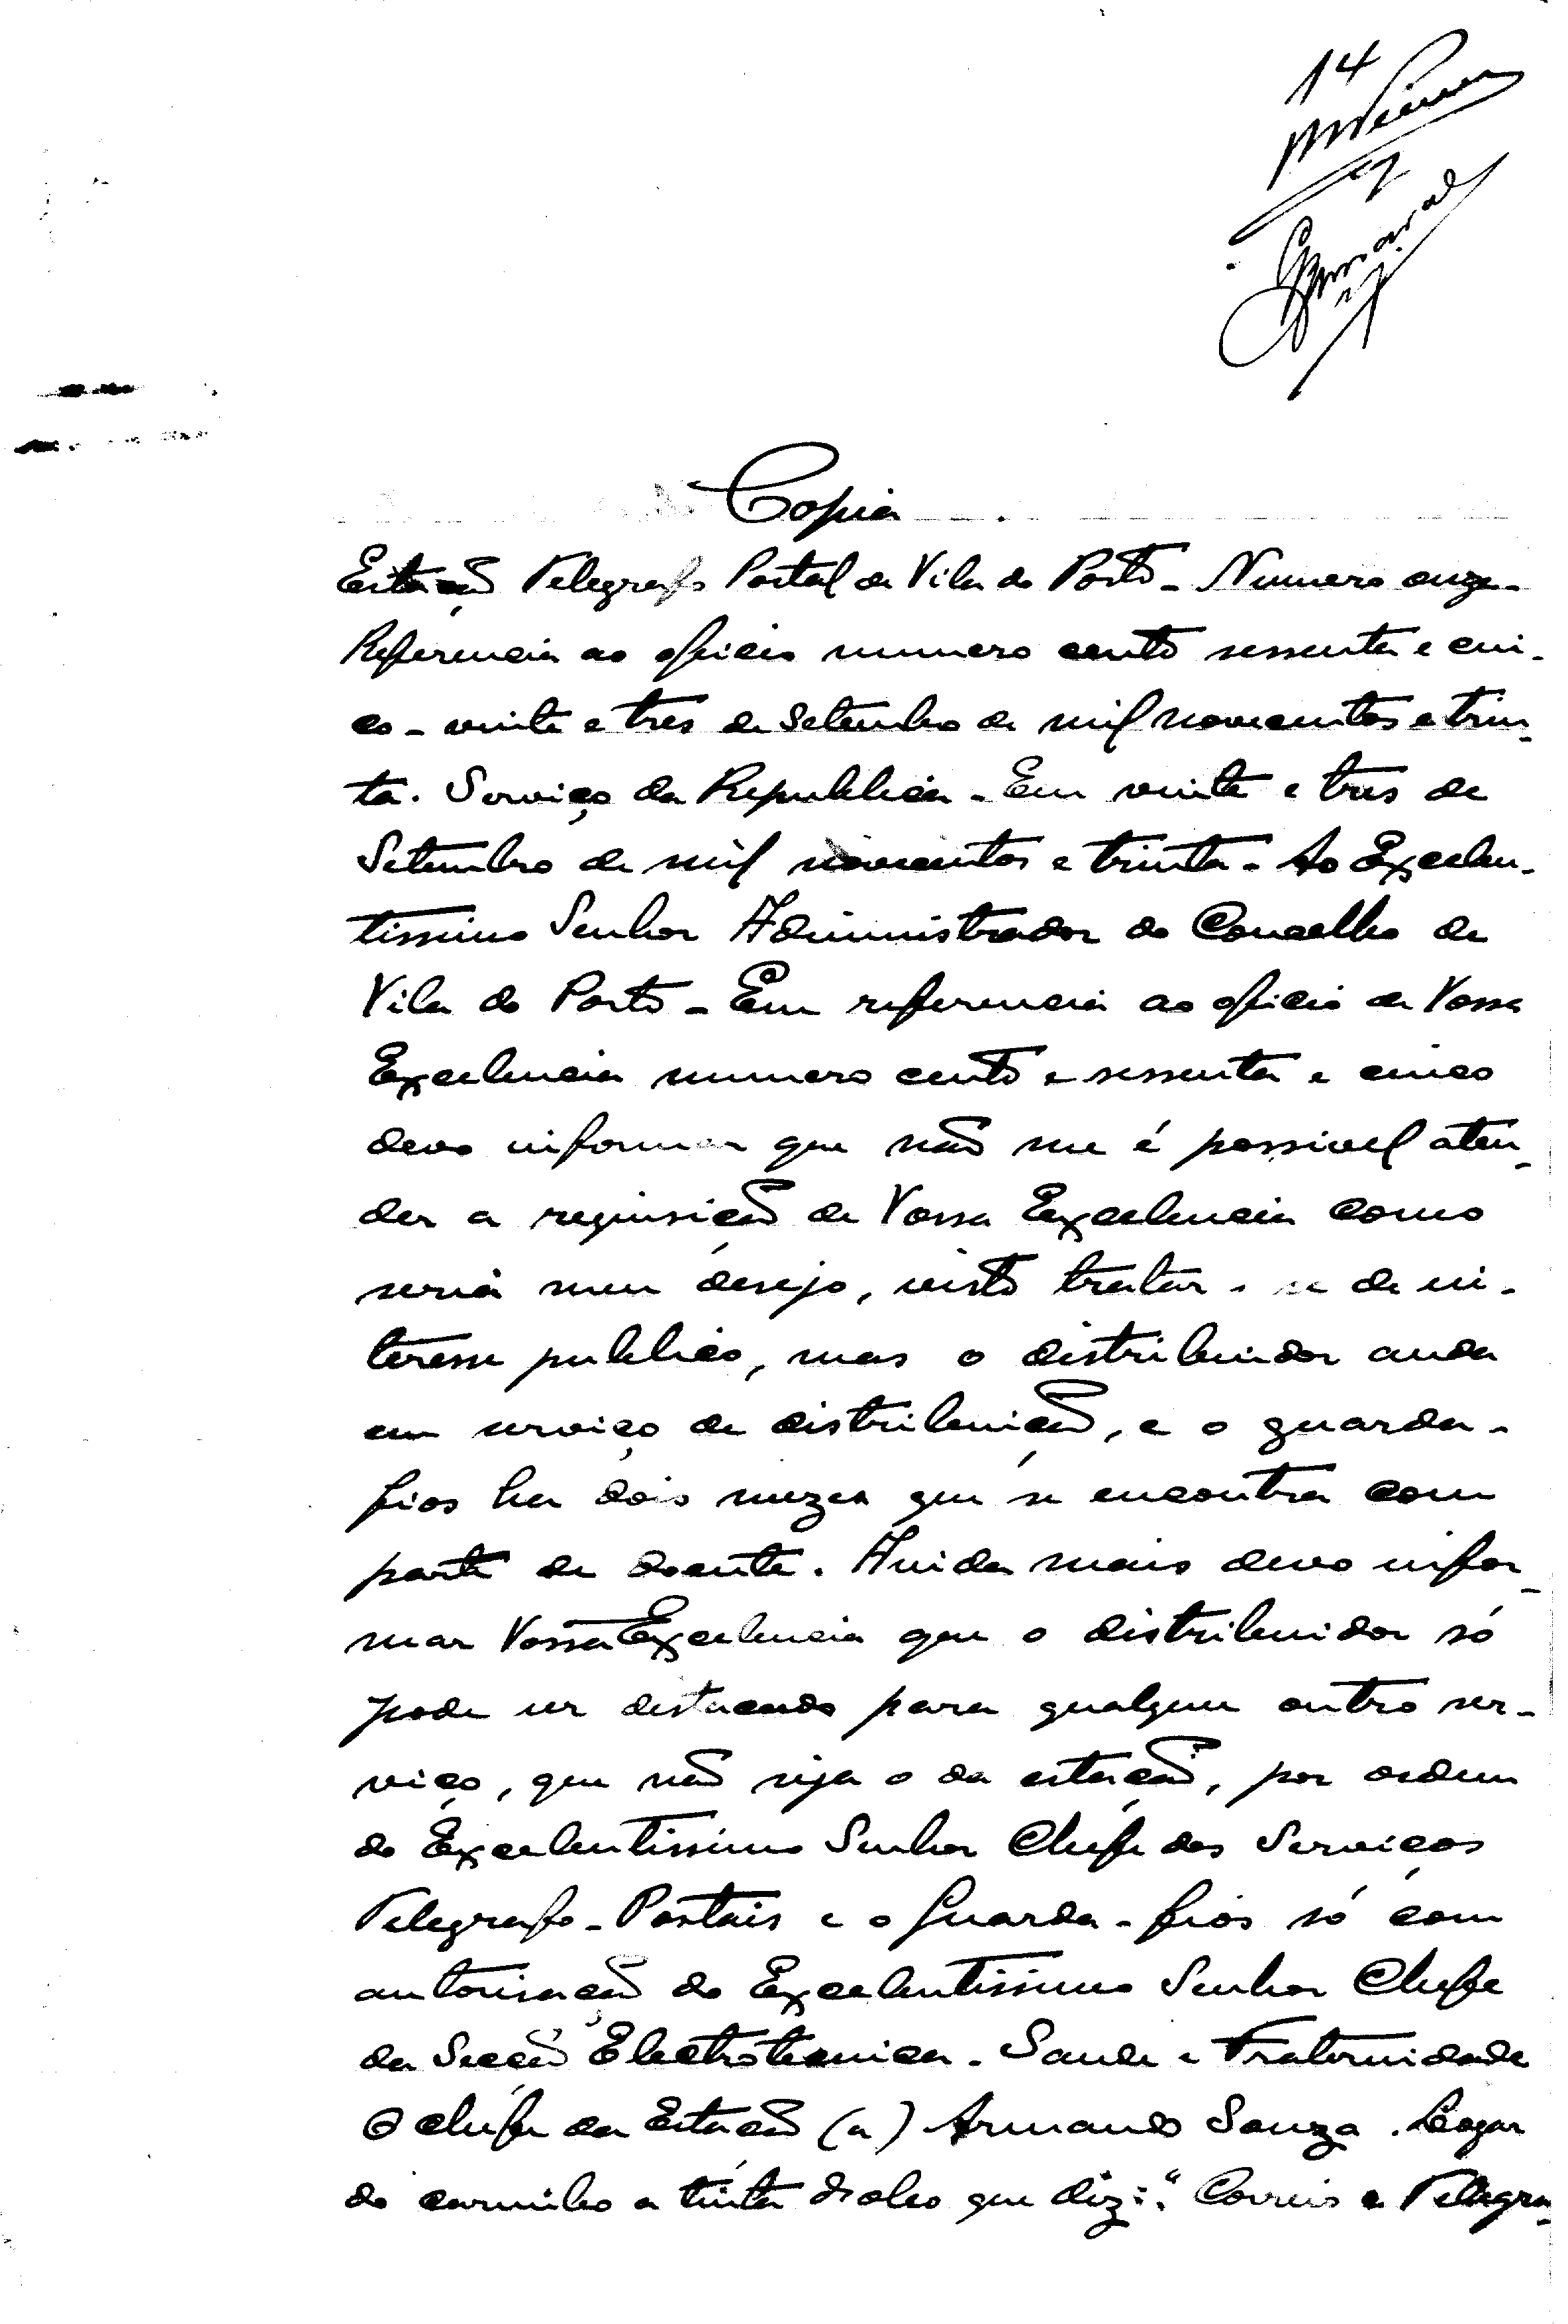 14
Copia
Estação Telegrafo Postal de Vila do Porto - Numero onze -
Referencia ao oficio numero cento sessenta e cin-
co - vinte e tres de Setembro de mil novecentos e trin-
ta. Serviço da Republica - Em vinte e tres de
Setembro de mil novecentos e trinta - Ao Excelen-
tissimo Senhor Administrador do Concelho de
Vila do Porto - Em referencia ao oficio de Vossa
Excelencia numero cento e sessenta e cinco
devo informar que não me é possivel aten-
der a requisição de Vossa Excelencia como
seria meu desejo, visto tratar-se de in-
teresse publico, mas o distribuidor anda
em serviço de distribuição, e o guarda-
fios ha dois mezes que se encontra com
parte de doente. Ainda mais devo infor-
mar Vossa Excelencia que o distribuidor só
pode ser destacado para qualquer outro ser-
viço, que não seja o da estação, por ordem
do Excelentissimo Senhor Chefe dos Serviços
Telegrafo-Postais e o Guarda-fios só com
autorisação do Excelentissimo Senhor Chefe
da Secção Electrotecnica. Saude e Fraternidade
O chefe da Estação (a) Armando Souza. Logar
do carimbo a tinta d'oleo que diz: "Correio e Telegra-